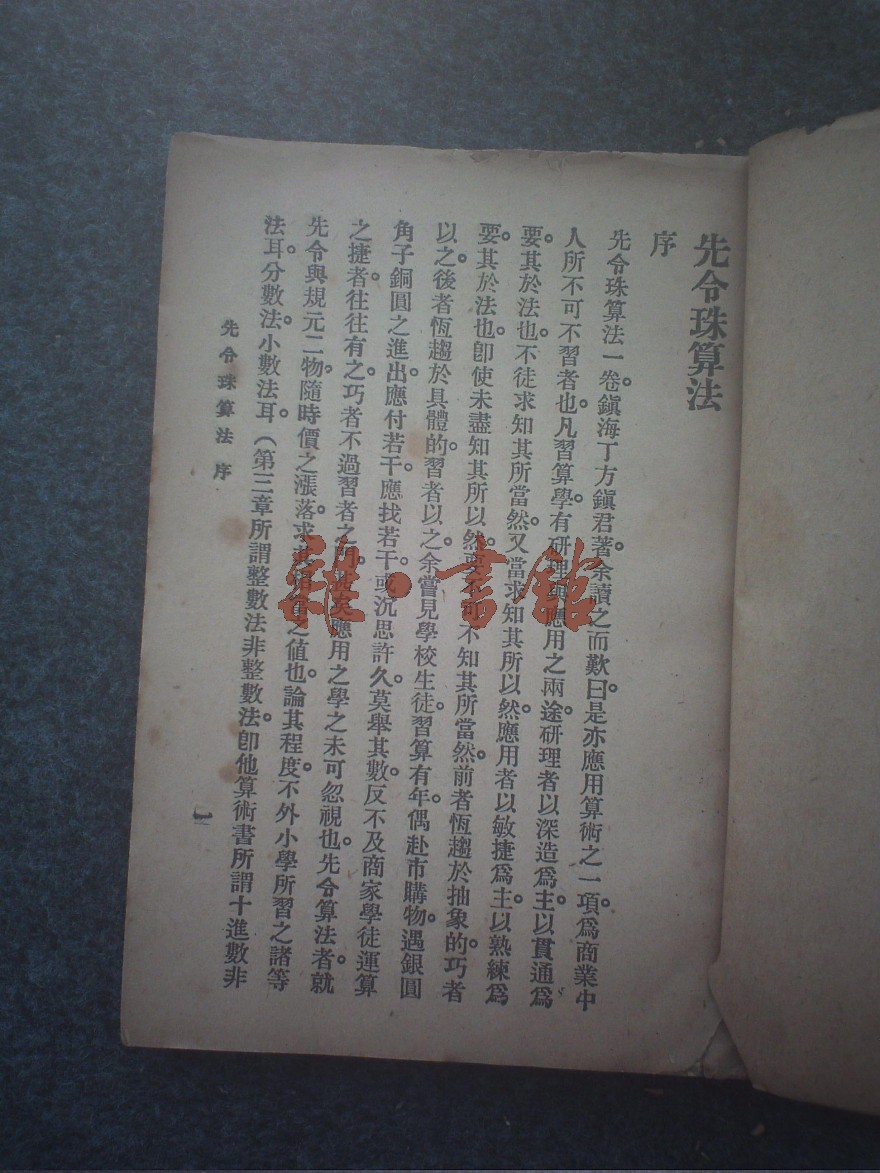 先令珠算法
序
先令珠算法一卷。鎭海丁方鎭君著。余讀之而歎曰。是亦應用算術之一項。爲商業中
人所不可不習者也。凡習算學。有研理與應用之兩途。研理者以深造爲主。以貫通爲
要。其於法也。不徒求知其所當然。又當求知其所以然。應用者以敏捷爲主。以熟練爲
要。其於法也。卽使未盡知其所以然。要不可不知其所當然。前者恆趨於抽象的。巧者
以之。後者恆趨於具體的。習者以之。余嘗見學校生徒。習算有年。偶赴市購物。遇銀圓
角子銅圓之進出。應付若干。應找若干。或沉思許久。莫舉其數。反不及商家學徒運算
之捷者。往往有之。巧者不過習者之門。應用之學之未可忽視也。先令算法者。就
先令與規元二物。隨時價之漲落。求之值也。論其程度。不外小學所習之諸等
法耳。分數法。小數法耳。（第三章所謂整數法非整數法。卽他算術書所謂十進數非
先令珠算法 序
一
雜·書館